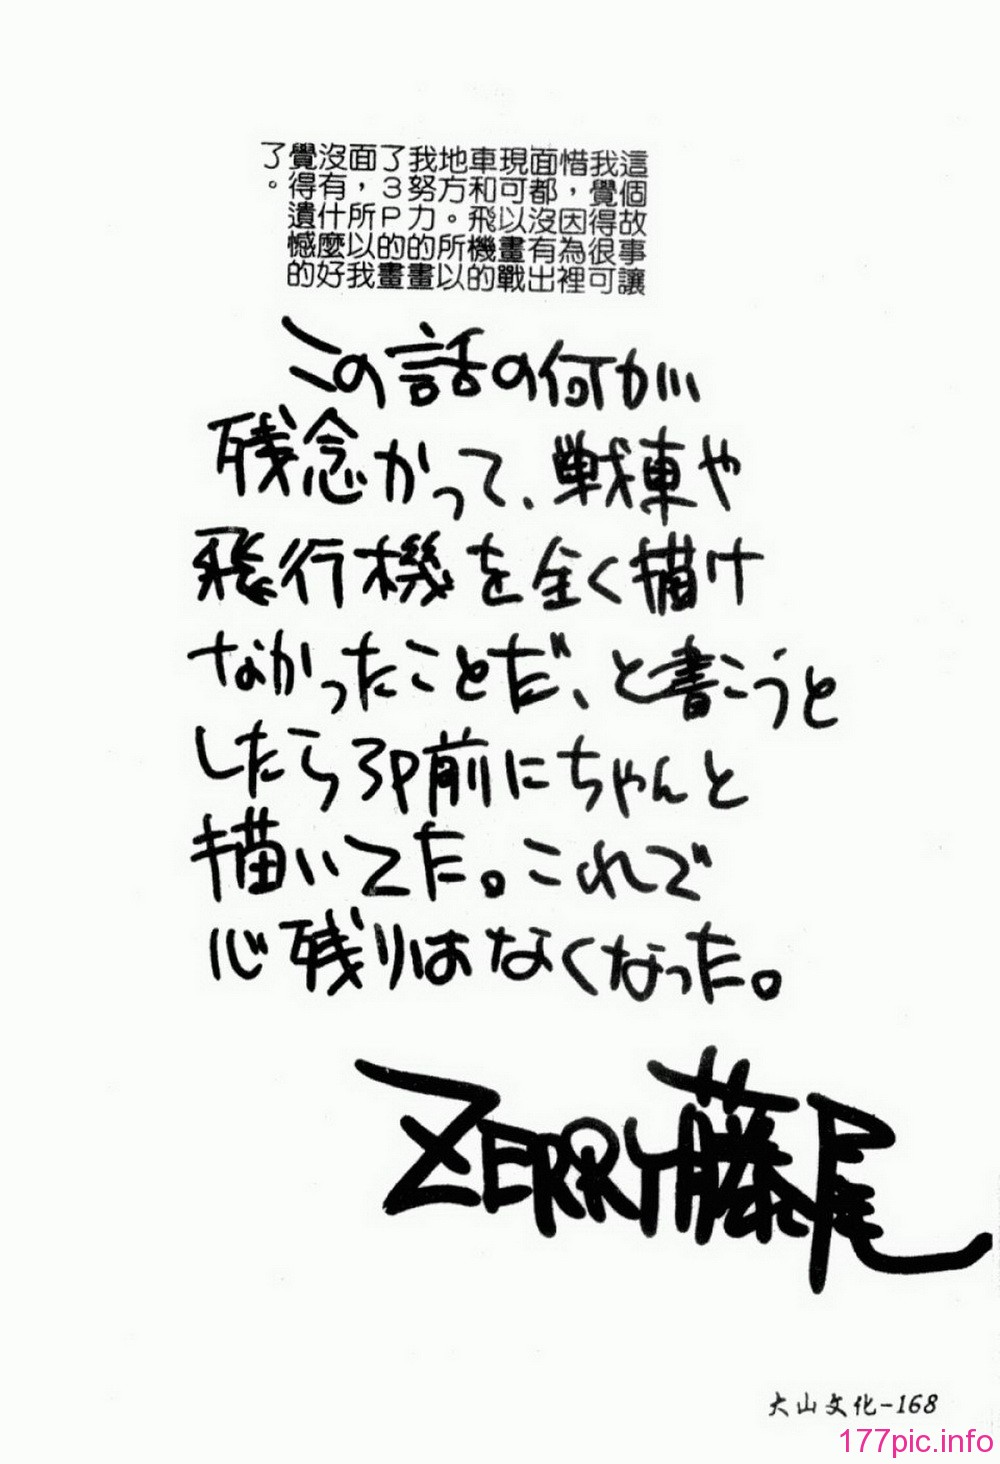 這個故事讓
我覺得很可
惜，因為裡
面都沒有出
現可以畫戰
車和飛機的
地方。所以
我努力的畫
了3P的畫
面，所以我
沒有什麼好
覺得遺憾的
了。
この話の何が
残念かって、戦車や
飛行機を全く描け
なかったことだ、と書こうと
したら3P前にちゃんと
描いてた。これで
心残りはなくなった。
ZERRY藤尾
大山文化-168
177pic.info